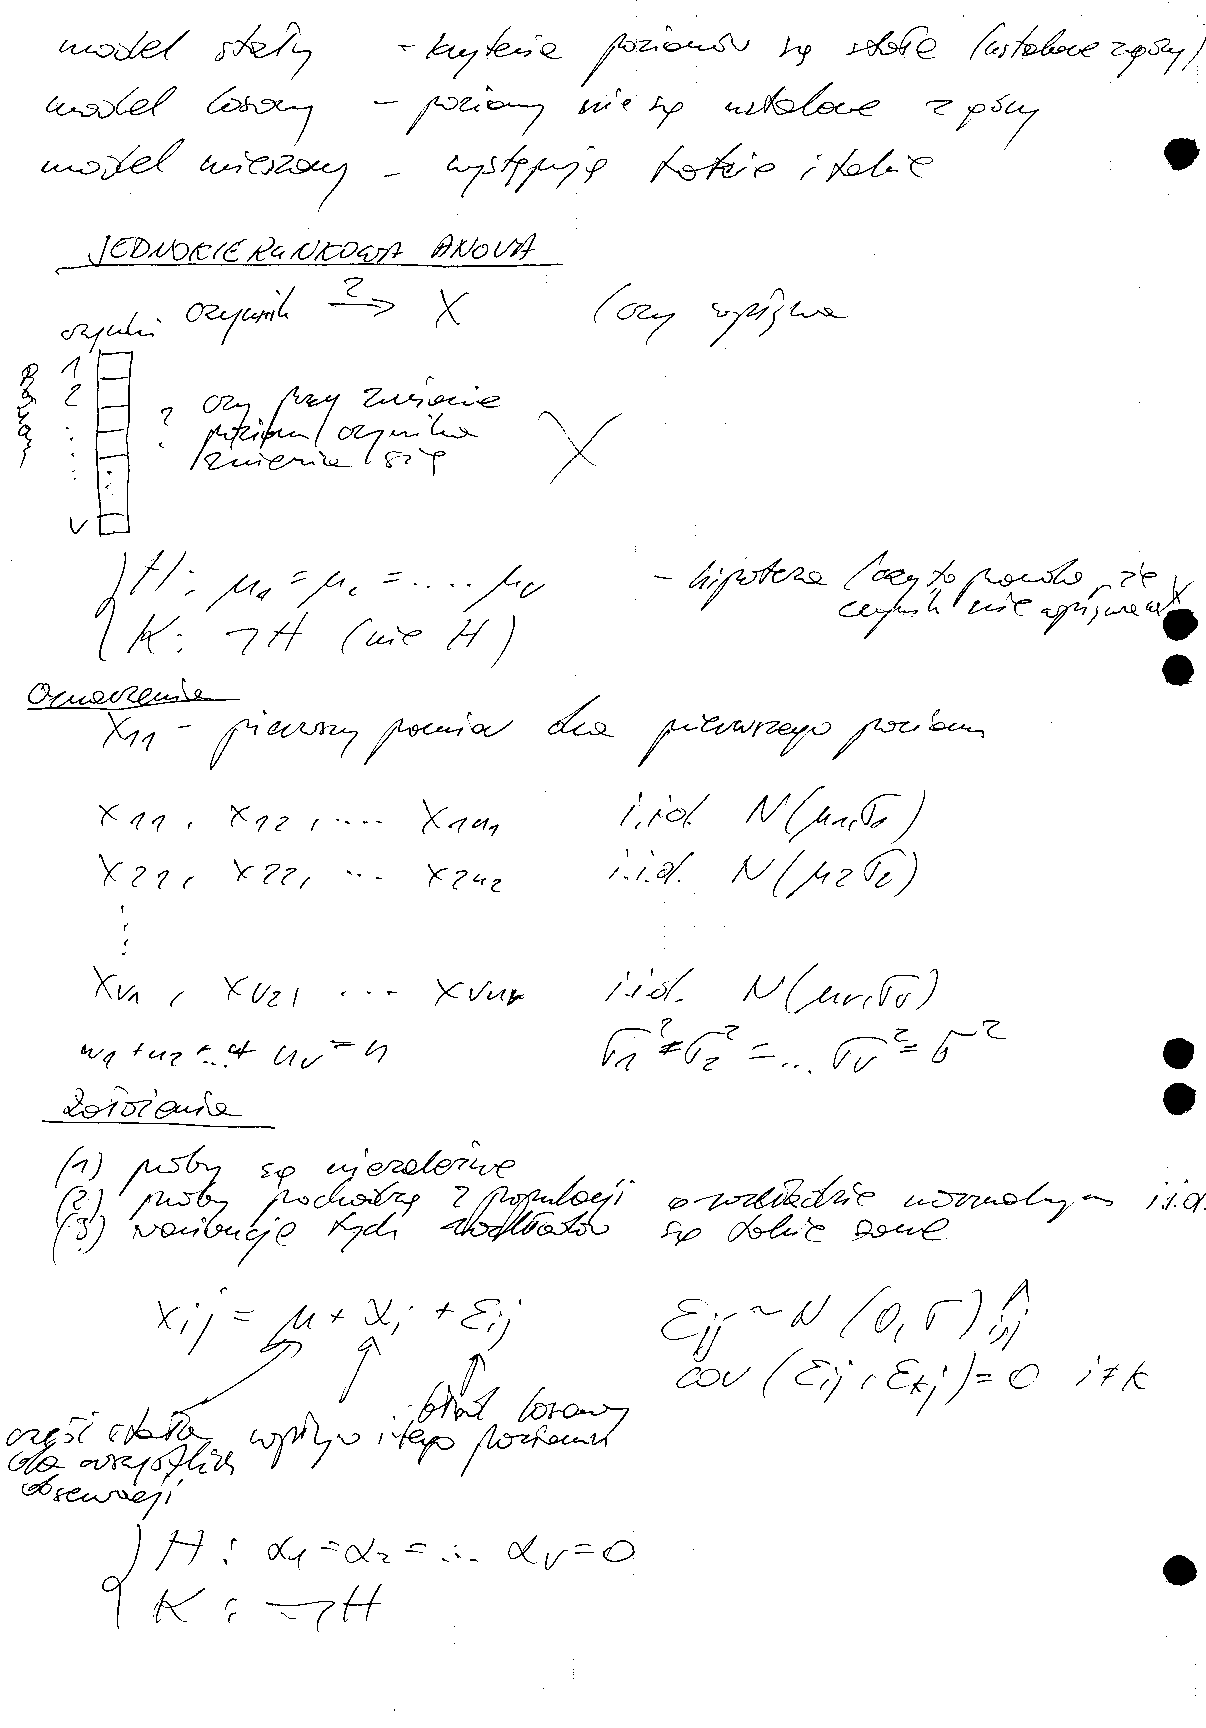 model stały - kryteria poziomów są stałe (ustalone z góry)
model losowy - poziomy nie są ustalone z góry
model mieszany - występują takie i takie
JEDNOKIERUNKOWA ANOVA
czynnik ?→ X (czy wpływa
czynnik
poziomy
1
2
⋮
v
? czy przy zmianie
poziomu czynnika
zmienia się X
H: μ1 = μ2 = .... μv - hipoteza (czy to prawda, że
K: ¬H (nie H) czynnik nie wpływa na X
Oznaczenia
X11 - pierwszy pomiar dla pierwszego poziomu
X11, X12, .... X1n1 i.i.d. N(μ1, σ1)
X21, X22, ... X2n2 i.i.d. N(μ2 σ2)
⋮
Xv1, Xv2, ... Xvnv i.i.d. N(μv, σv)
n1 + n2 + ... + nv = n σ1² = σ2² = ... σv² = σ²
Założenia
(1) próby są niezależne
(2) próby pochodzą z populacji o rozkładzie normalnym i.i.d.
(3) wariancje tych rozkładów są takie same
Xij = μ + αi + εij εij ~ N (0, σ) ∧ i,j
cov (εij, εkj) = 0 i ≠ k
błąd losowy
część stała wpływ i-tego poziomu
dla wszystkich
obserwacji
H: α1 = α2 = ... αv = 0
K: ¬H